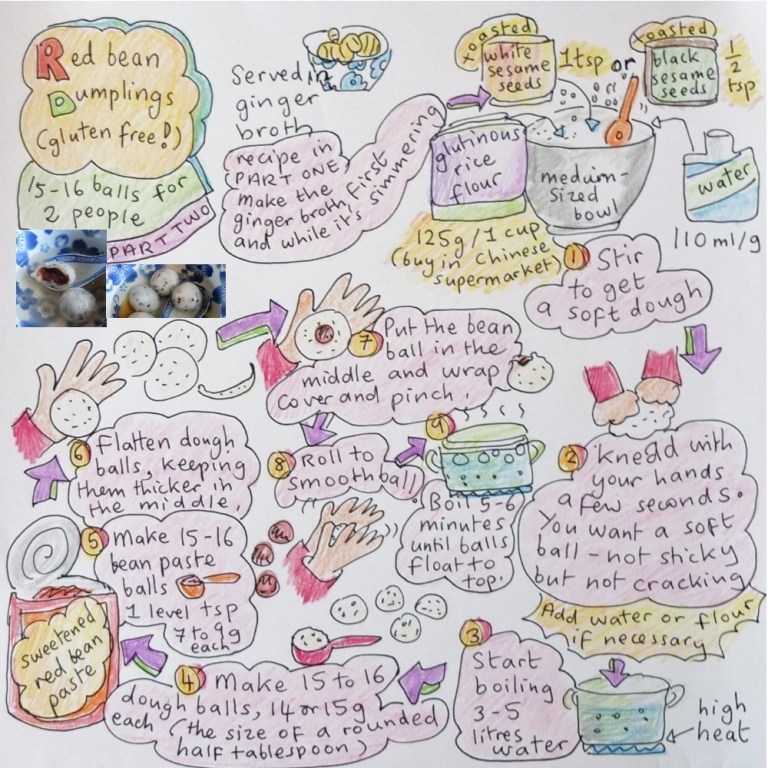 Red bean
Dumplings
(gluten free!)
15-16 balls for
2 people
PART TWO
Served in
ginger
broth,
recipe in
PART ONE
make the
ginger broth, first
and while it's simmering
toasted
white
sesame
seeds
1tsp or
toasted
black
sesame
seeds
1/2
tsp
glutinous
rice
flour
medium-
sized
bowl
water
125g/1 cup
(buy in Chinese
supermarket)
110 ml/g
1 Stir
to get
a soft dough
2 Knead with
your hands
a few seconds.
You want a soft
ball - not sticky
but not cracking
Add water or flour
if necessary
3
Start
boiling
3-5
litres
water
high
heat
4 Make 15 to 16
dough balls, 14 or 15g
each (the size of a rounded
half tablespoon)
5 Make 15-16
bean paste
balls
1 level tsp
7 to 9g
each
sweetened
red bean
paste
6 Flatten dough
balls, keeping
them thicker in
the middle.
7 Put the bean
ball in the
middle and wrap
cover and pinch.
8 Roll to
smooth ball
9
Boil 5-6
minutes
until balls
float to
top.